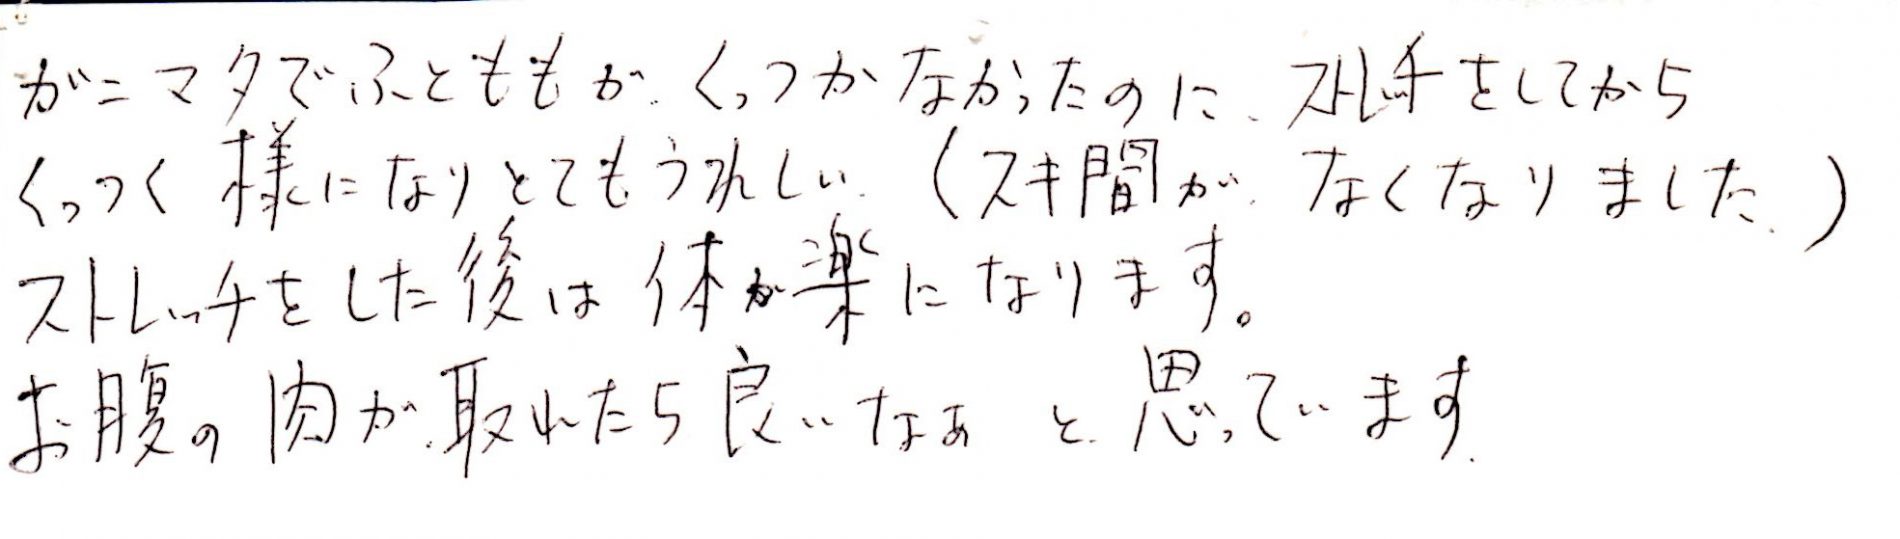 がニマタでふとももが、くっつかなかったのに、ストレッチをしてから
くっつく様になりとてもうれしい。(スキ間が、なくなりました。)
ストレッチをした後は体が楽になります。
お腹の肉が、取れたら良いなぁと思っています。